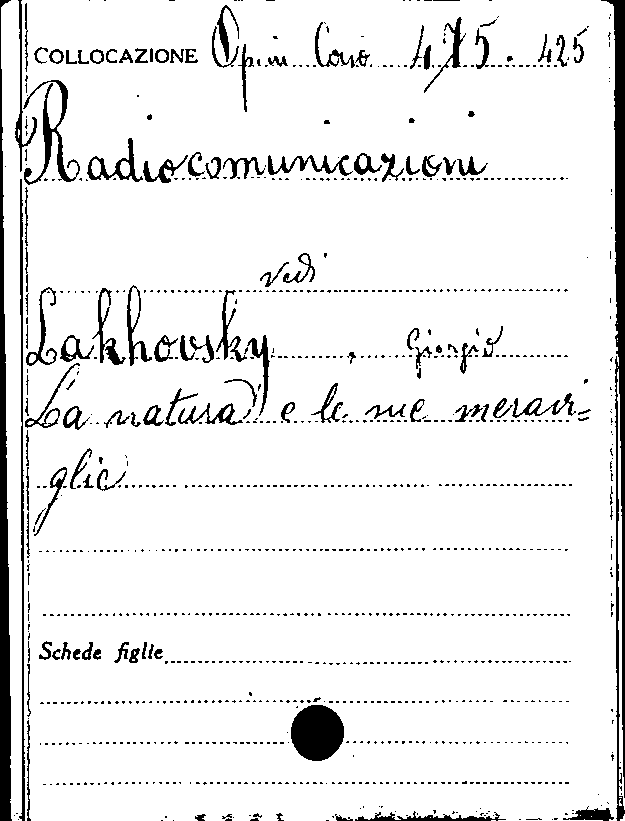 COLLOCAZIONE Opini Corso 475. 425
Radiocomunicazioni
vedi
Lakhovsky, Giorgio
La natura e le sue meravi=
glie
Schede figlie